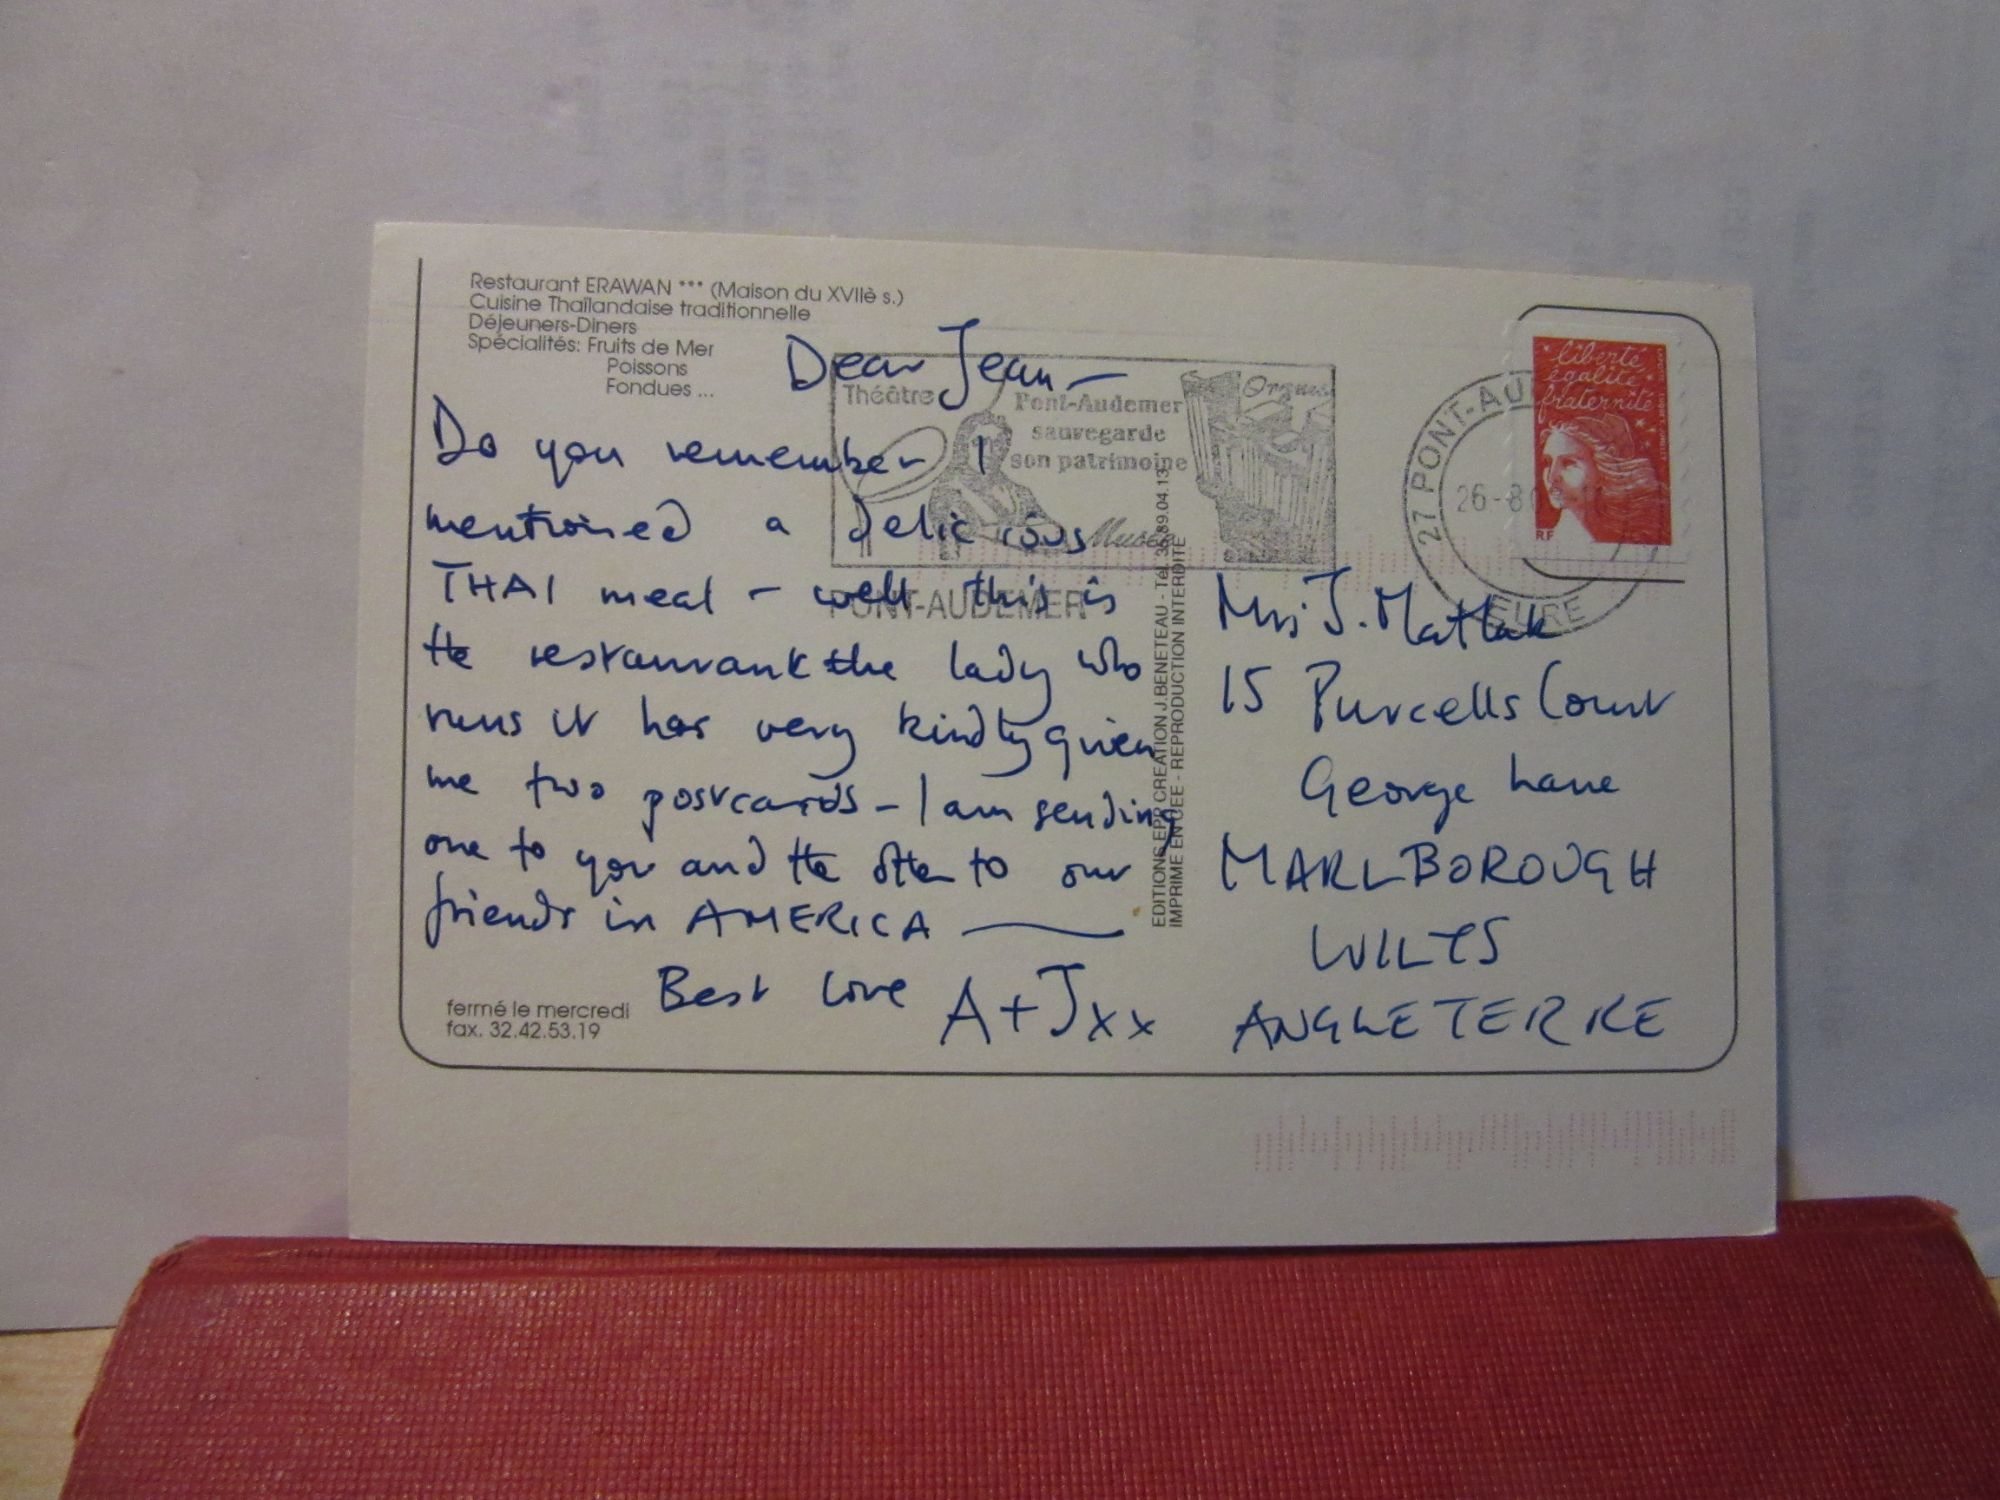 Restaurant ERAWAN *** (Maison du XVIIè s.)
Cuisine Thaïlandaise traditionnelle
Déjeuners-Diners
Spécialités: Fruits de Mer
Poissons
Fondues ...
Dear Jean –
Do you remember I
mentioned a delicious
THAI meal – well this is
the restaurant the lady who
runs it has very kindly given
me two postcards – I am sending
one to you and the other to our
friends in AMERICA
Best love A + J xx
fermé le mercredi
fax. 32.42.53.19
Théâtre
Pont-Audemer
sauvegarde
son patrimoine
Orgues
Musée
PONT-AUDEMER
EDITIONS EPP CREATION J.BENETEAU - Tél. 39.89.04.13
IMPRIME EN CEE - REPRODUCTION INTERDITE
27 PONT-AU
26-8
EURE
liberté
égalité
fraternité
RF
Mrs J. Matlak
15 Purcells Court
George Lane
MARLBOROUGH
WILTS
ANGLETERRE